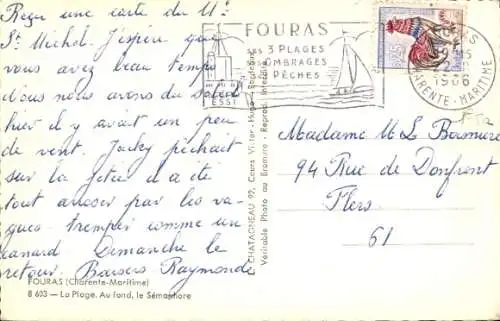 Reçu une carte du Mt
St Michel. J'espère que
vous avez beau temps
Nous nous avons du soleil
hier il y avait un peu
de vent. Jacky pêchait
sur la jetée il a été
tout arroser par les va-
gues tremper comme un
canard Dimanche le
retour. Baisers Raymonde
FOURAS (Charente-Maritime)
B 603 — La Plage. Au fond, le Sémaphore
CHATAGNEAU 97, Cours Victor-Hugo
Véritable Photo au Bromure - Reprod. Interdite
FOURAS
SES 3 PLAGES
SES OMBRAGES
PÊCHES
CHARENTE-MARITIME
Madame M L
94 Rue de Domfront
Flers.
61